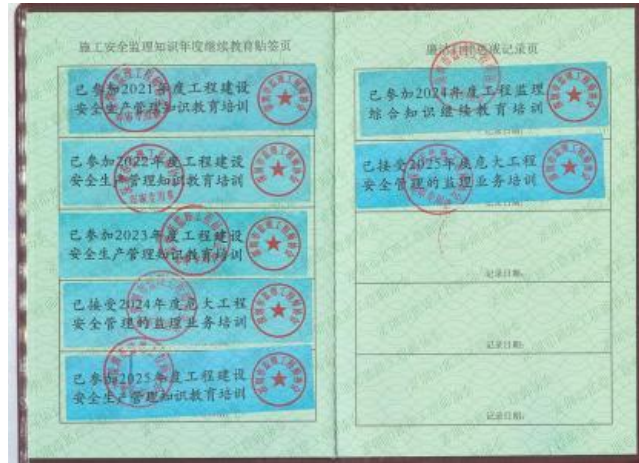 施工安全监理知识年度继续教育贴签页
已参加2021年度工程建设
安全生产管理知识教育培训
已参加2022年度工程建设
安全生产管理知识教育培训
已参加2023年度工程建设
安全生产管理知识教育培训
已接受2024年度危大工程
安全管理的监理业务培训
已参加2025年度工程建设
安全生产管理知识教育培训
记录页
已参加2024年度工程监理
综合知识继续教育培训
已接受2025年度危大工程
安全管理的监理业务培训
记录日期:
记录日期:
记录日期: